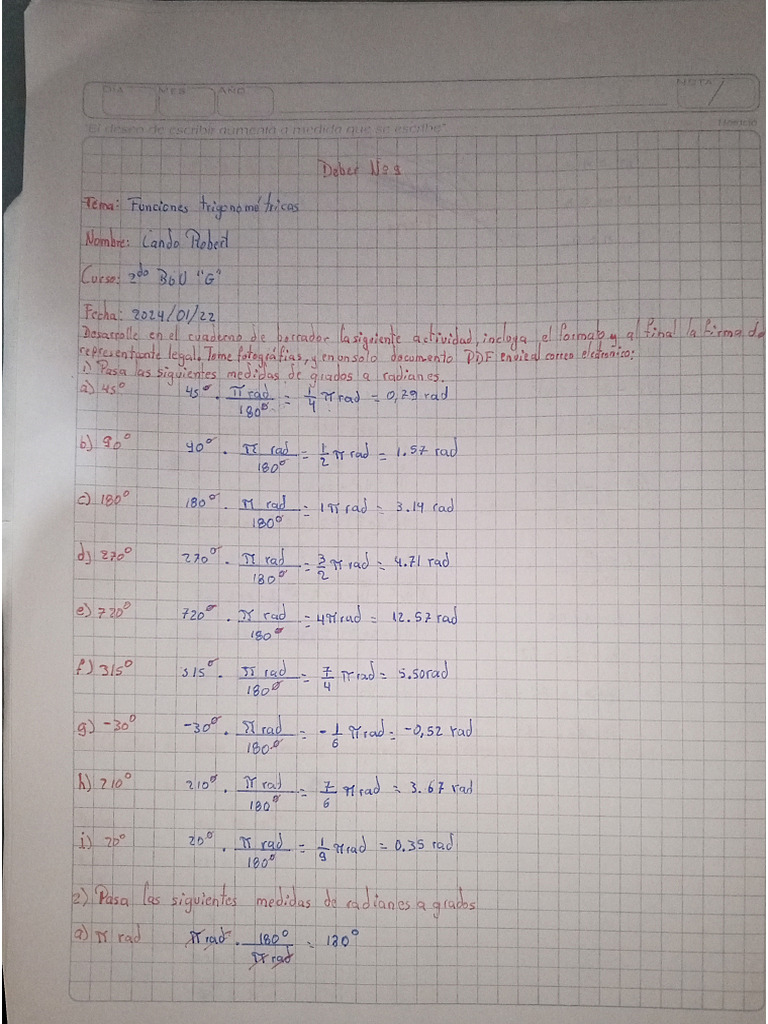 DIA MES AÑO NOTA
"El deseo de escribir aumenta a medida que se escribe"
Deber No 9
Tema: Funciones trigonométricas
Nombre: Cando Robert
Curso: 2do BGU "G"
Fecha: 2024/01/22
Desarrolle en el cuaderno de borrador la siguiente actividad, incluya el formato y al final la firma de
representante legal. Tome fotografías, y en un solo documento PDF envíe al correo electrónico:
1) Pasa las siguientes medidas de grados a radianes.
a) 45° 45° · π rad/180° = 1/4 π rad = 0,79 rad
b) 90° 90° · π rad/180° = 1/2 π rad = 1.57 rad
c) 180° 180° · π rad/180° = 1π rad = 3.14 rad
d) 270° 270° · π rad/180° = 3/2 π rad = 4.71 rad
e) 720° 720° · π rad/180° = 4π rad = 12.57 rad
f) 315° 315° · π rad/180° = 7/4 π rad = 5.50 rad
g) -30° -30° · π rad/180° = -1/6 π rad = -0,52 rad
h) 210° 210° · π rad/180° = 7/6 π rad = 3.67 rad
i) 20° 20° · π rad/180° = 1/9 π rad = 0.35 rad
2) Pasa las siguientes medidas de radianes a grados
a) π rad π rad · 180°/π rad = 180°